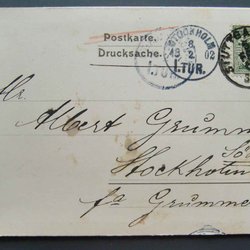 Postkarte.
Drucksache.
STOCKHOLM
13 2 02
1.TUR.
1.TUR
STUTTGA
Hr.
Albert Grumme
Sö
Stockholm
fa Grumme